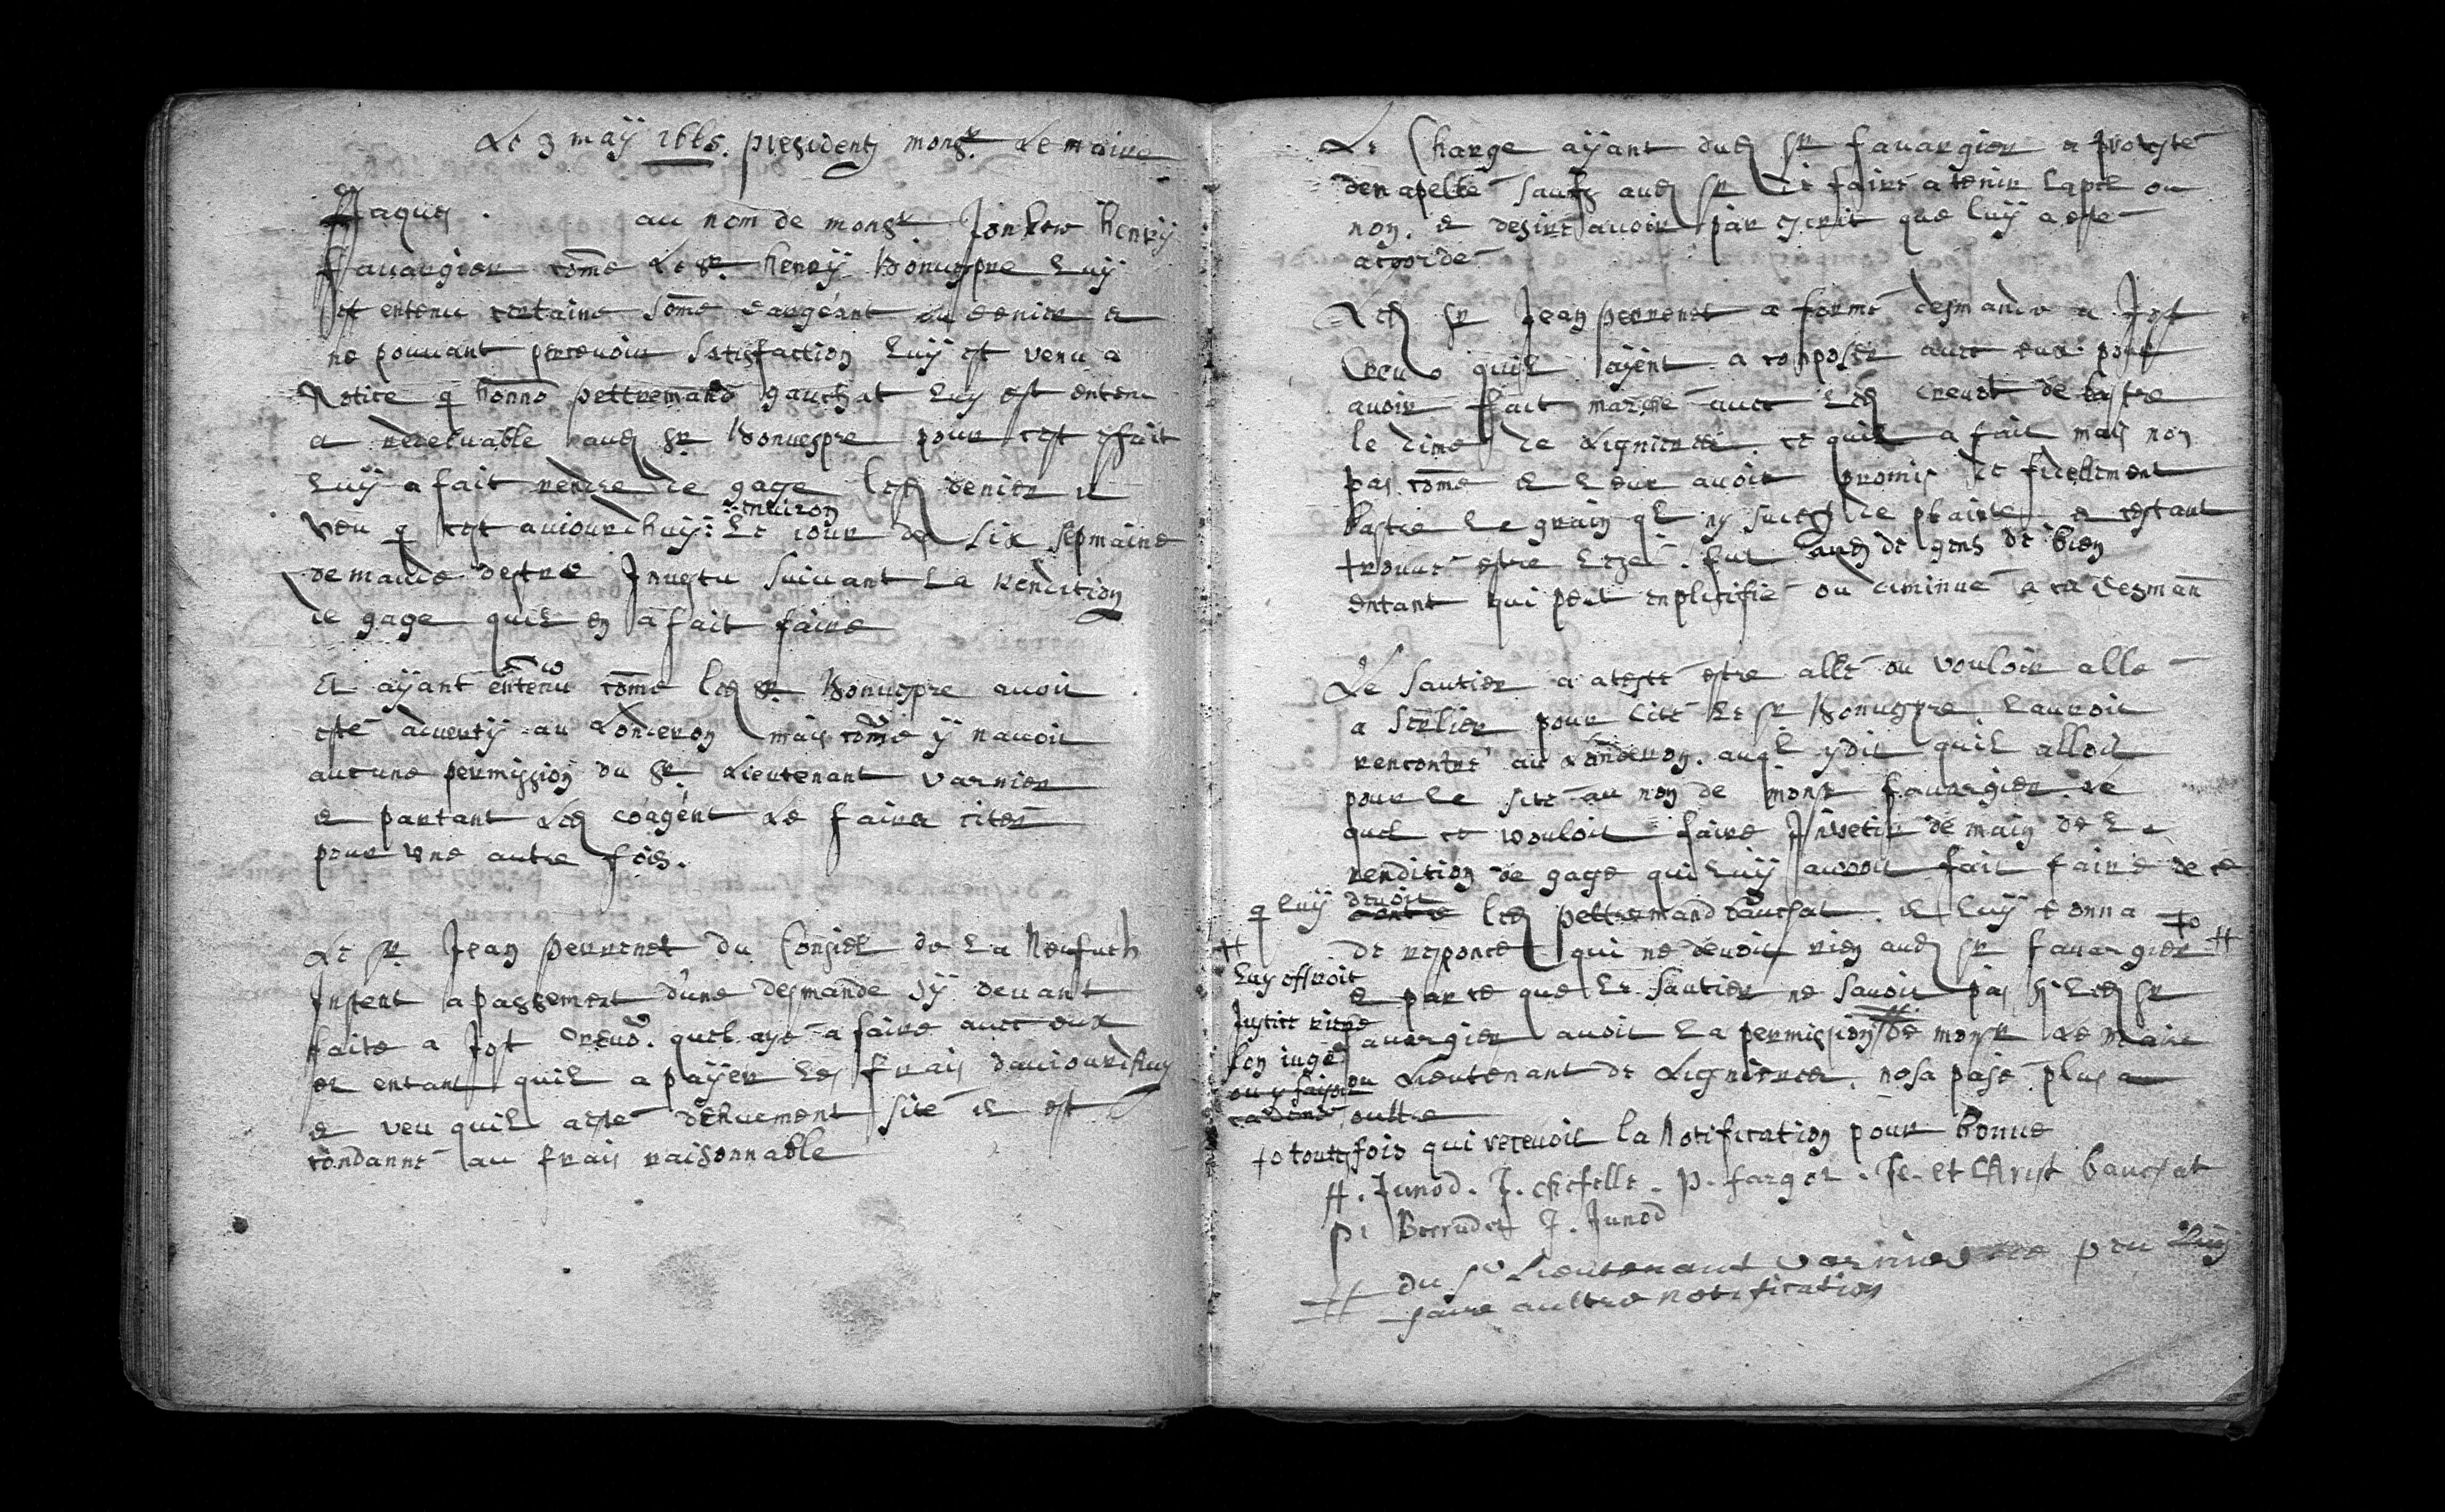 Le 3 maÿ 1665. president monsr Le maire
Jaques . au nom de monsr Henrÿ
Fauargier come Le Sr. henrÿ Bonuespre Luÿ
est entenu certaine some dargeant en denier et
ne pouuant perceuoir Satisfaction Luÿ est venu a
Notice q honno pettremand gauchat Luy est entenu
et recepuable aud Sr Bonuespre pour cest efait
Luÿ a fait rendre de gage led denier et
veu q cest auiourdhuÿ enuiron Le iour des six sepmaine
demande destre Inuestu suiuant La Rendition
de gage quil en a fait faire
Et aÿant entenu come led Sr. Bonuespre auoit
esté aduertÿ au Londeron mais come ÿ nauoit
aucune permission du Sr. Lieutenant varnier
et partant Led coagent Le faira citer
pour une autre fois.
Le Sr. Jean perrenet du Conseil de La Neufueh
Instent a passement dune desmande sÿ deuant
faite a Jost Creud. quil aye a faire auec eux
et entant quil a paÿer Les frais dauiourdhuy
et veu quil a esté dehuement sité il est
condanne au frais raisonnable
Le Charge aÿant dud Sr fauargier a protesté
den apelle sauf aud Sr de faire a tenir Lapel ou
non. et desire auoir par escrit que luÿ a esté
acordé
Led Sr Jean perrenet a formé desmande a Jost
Creud quil aÿent a composer auec eux pour
auoir fait marché auec led Creud de bastre
le dime de Lignieres. ce quil a fait mais non
pas come il Leur auoit promis de fidellement
bastre Le grain ql ny de plainte et cestant
trouué estre Lezé. fut de gens de bien
entant qui peut enplifié ou diminué a sa desman
Le Sautier a atesté estre allé ou vouloir allé
a pour cité Le Sr Bonuespre. Lauroit
rencontré au Londeron. auql ydit quil alloit
pour Le sité au non de monsr fauargier. Le
quel ce vouloit faire Inuetir demain de La
rendition de gage qui Luÿ auoit fait faire de ce
q Luÿ deuoit led pettremand Gauchat. il Luÿ donna +o
de responce qui ne deuoit rien aud Sr fauargier #
et parce que Le Sautier ne sauoit pas si Led Sr
fauargier auoit La permission de monsr Le maire
ou Lieutenant de Lignieres. nosa pasé plus
oultre
# Luy offroit
Justice
lon iugé
ou y faisoit
+o touttefois qui receuoit la Notification pour bonne
H. Junod. J. chifelle. p. farger. Je. et Christ bauchat
J. Junod
# du Sr Lieutenant varnier peu Luÿ
faire aultre notification